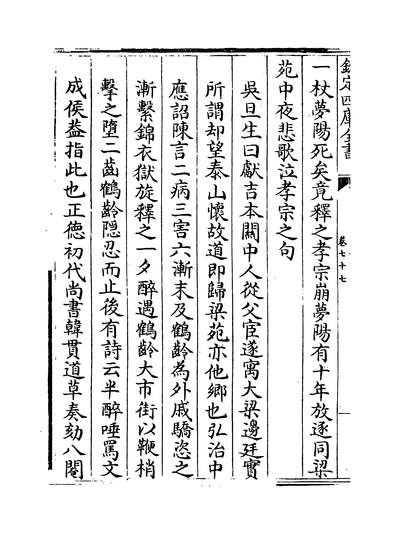 欽定四庫全書
卷七十七
一杖夢陽死矣竟釋之孝宗崩夢陽有十年放逐同梁
苑中夜悲歌泣孝宗之句
吳旦生曰獻吉本關中人從父宦遂寓大梁邊廷實
所謂却望泰山懷故道即歸梁苑亦他鄉也弘治中
應詔陳言二病三害六漸末及鶴齡為外戚驕恣之
漸繫錦衣獄旋釋之一夕醉遇鶴齡大市街以鞭梢
擊之墮二齒鶴齡隱忍而止後有詩云半醉唾罵文
成侯葢指此也正德初代尚書韓貫道草奏劾八閹